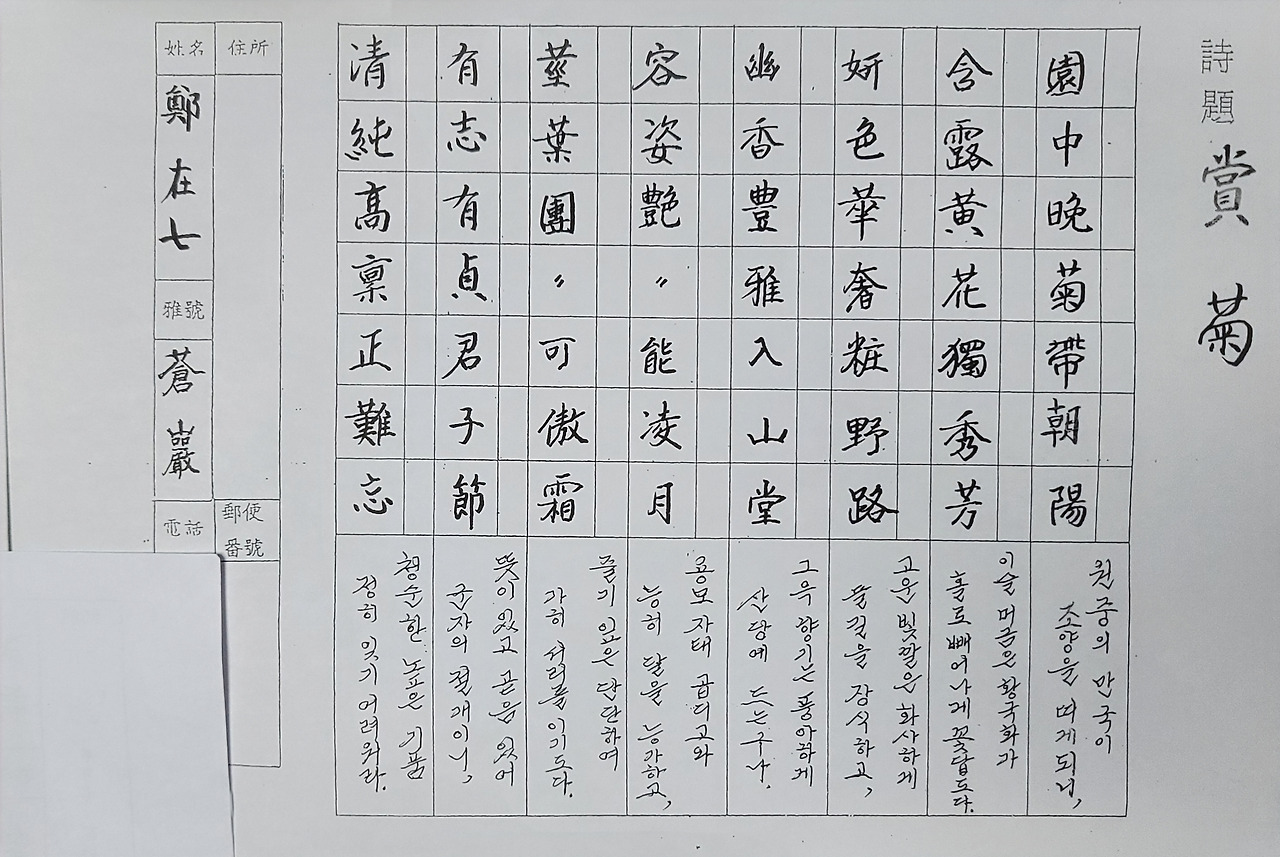 詩題 賞菊
園中晩菊帶朝陽
含露黃花獨秀芳
姸色華奢粧野路
幽香豊雅入山堂
容姿艶〃能凌月
莖葉團〃可傲霜
有志有貞君子節
清純高稟正難忘
원중의 만국이
조양을 띠게 되니,
이슬 머금은 황국화가
홀로 빼어나게 꽃답도다.
고운 빛깔은 화사하게
뜰길을 장식하고,
그윽 향기는 풍아하게
산당에 드는구나.
용모 자태 곱디고와
능히 달을 능가하고,
줄기 잎은 단단하여
가히 서리를 이기도다.
뜻이 있고 곧음 있어
군자의 절개이니,
청순한 높은 기품
정히 잊기 어려워라.
住所
郵便番號
姓名 鄭在七
雅號 蒼巖
電話